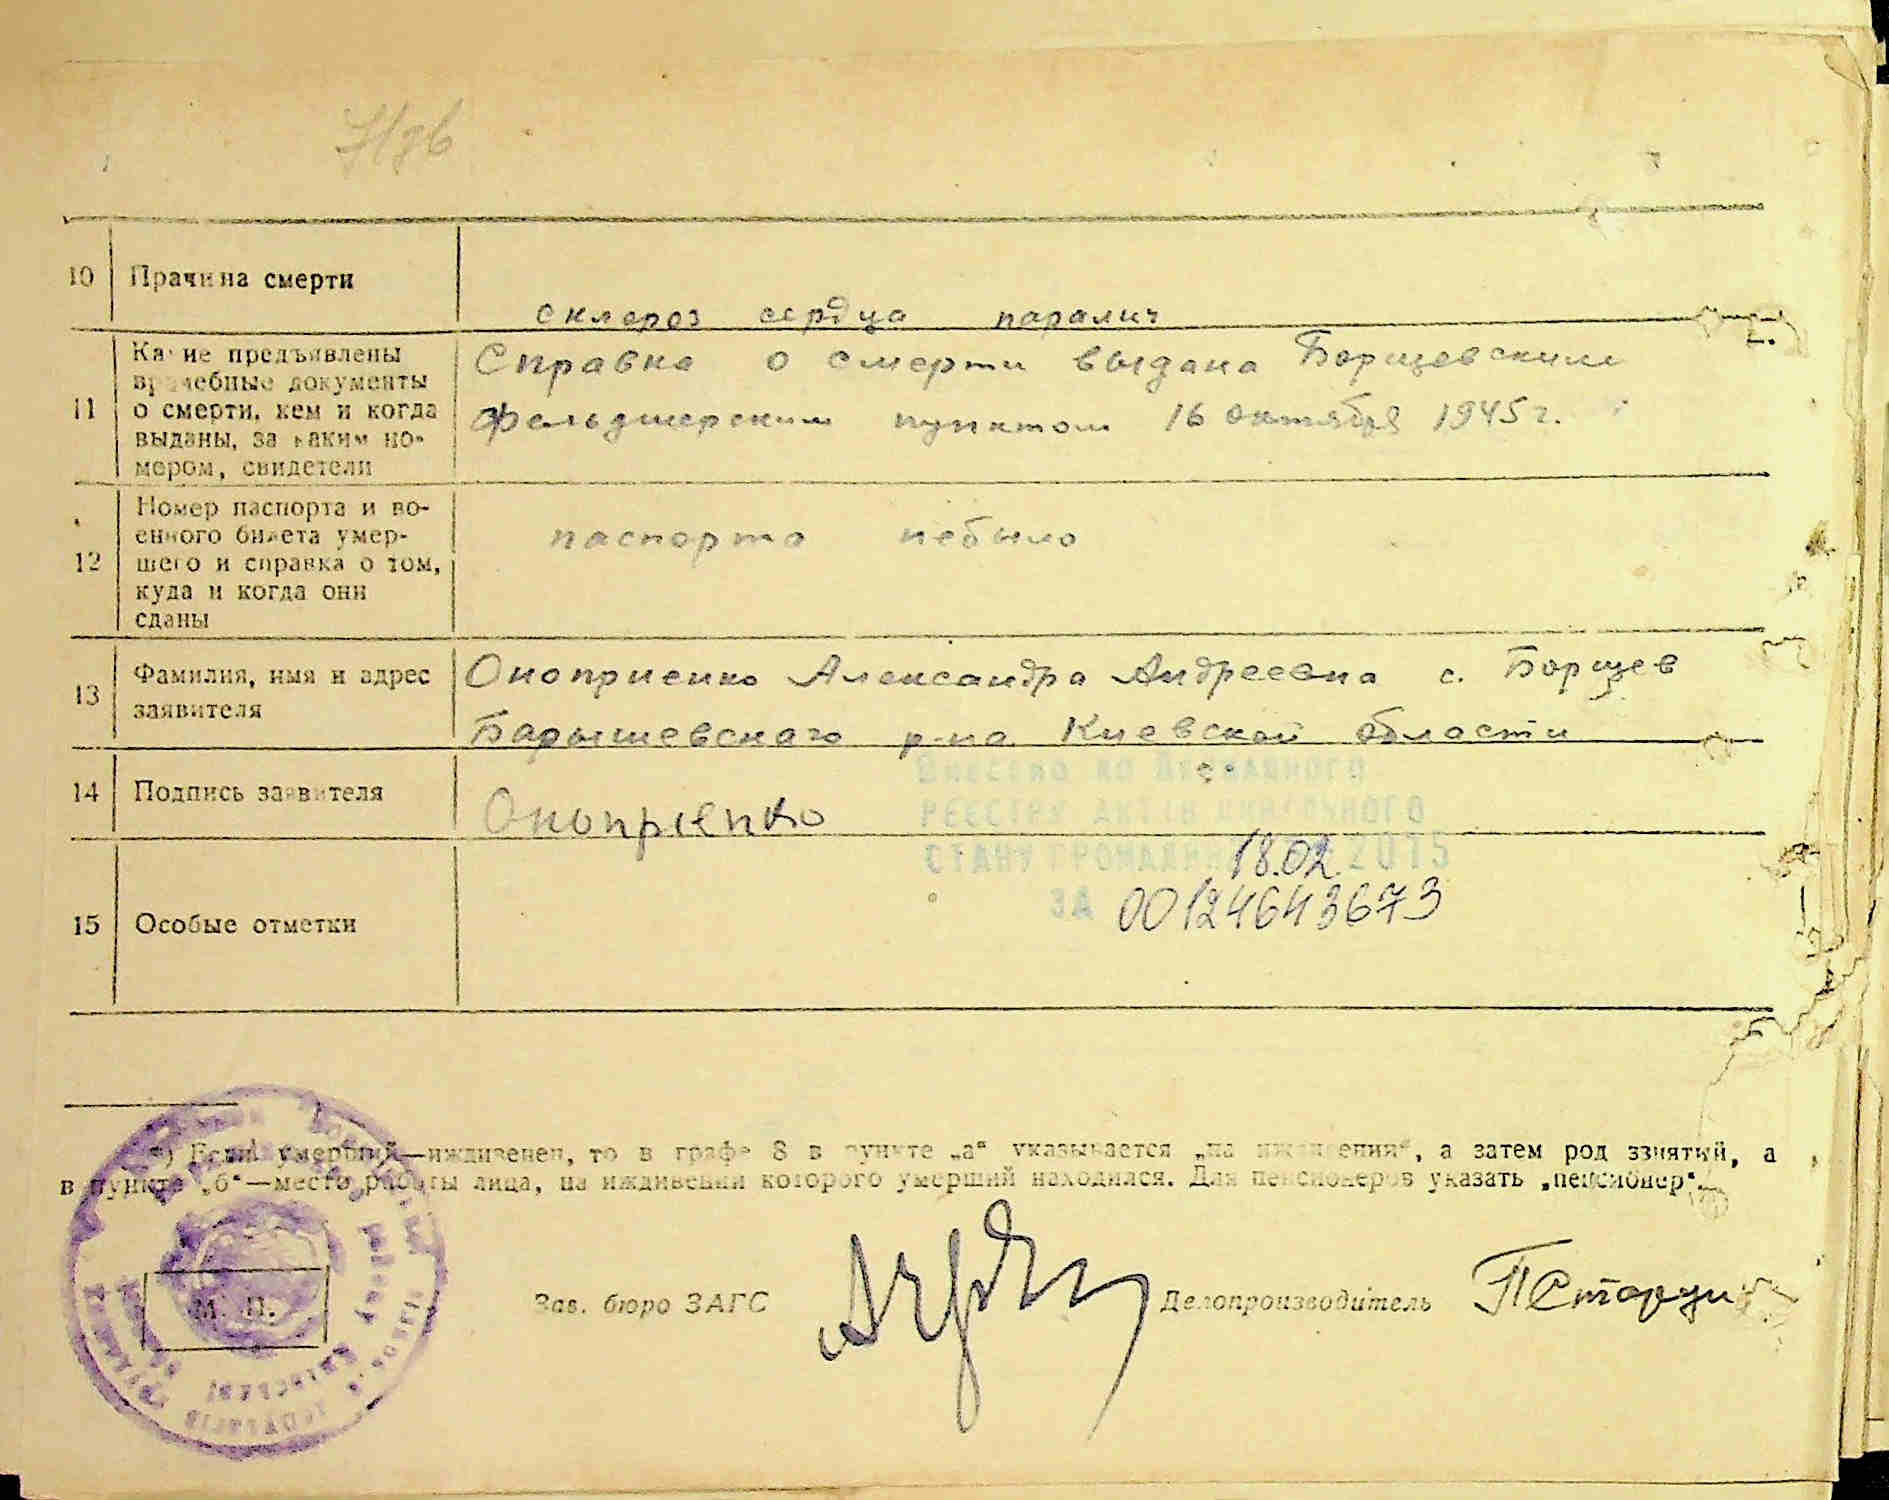 10 Прачина смерти
склероз сердца паралич
11 Какие предъявлены
врачебные документы
о смерти, кем и когда
выданы, за каким но-
мером, свидетели
Справка о смерти выдана Борщевским
фельдшерским пунктом 16 октября 1945 г.
12 Номер паспорта и во-
енного билета умер-
шего и справка о том,
куда и когда они
сданы
паспорта небыло
13 Фамилия, имя и адрес
заявителя
Оноприенко Александра Андреевна с. Борщев
Барышевского р-на Киевской области
14 Подпись заявителя
Оноприенко
Внесено до Державного
РЕЕСТРУ АКТІВ ЦИВІЛЬНОГО
СТАНУ ГРОМАДЯН 18.02.2015
ЗА 00124643673
15 Особые отметки
*) Если умерший—иждивенец, то в графе 8 в пункте „а“ указывается „на иждивении“, а затем род ззнятий, а
в пункте „б“—место работы лица, на иждивении которого умерший находился. Для пенсионеров указать „пенсионер“.
М. П.
Зав. бюро ЗАГС
Делопроизводитель